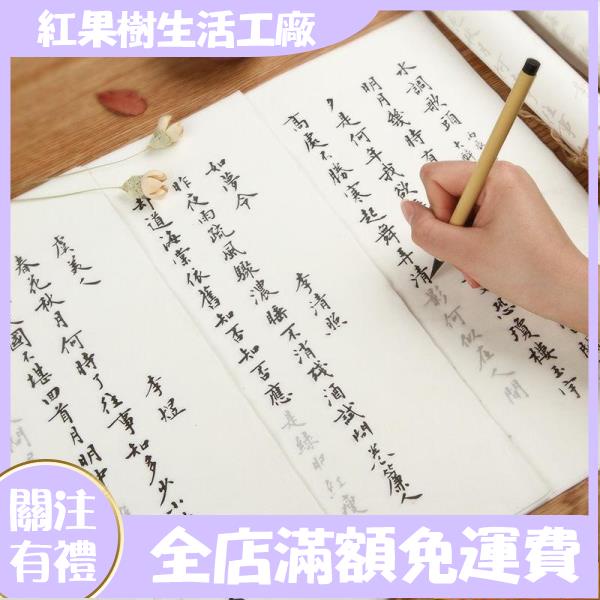 紅果樹生活工廠
水調歌頭
明月幾時有
夕是何年我欲
恐瓊樓玉宇
高處不勝寒起舞弄清影何似在人間
如夢令 李清照
昨夜雨疏風驟濃睡不消殘酒試問卷簾人
却道海棠依舊知否知否應是綠肥紅瘦
虞美人 李煜
春花秋月何時了往事知多少小
國不堪回首月明中
關注
有禮
全店滿額免運費